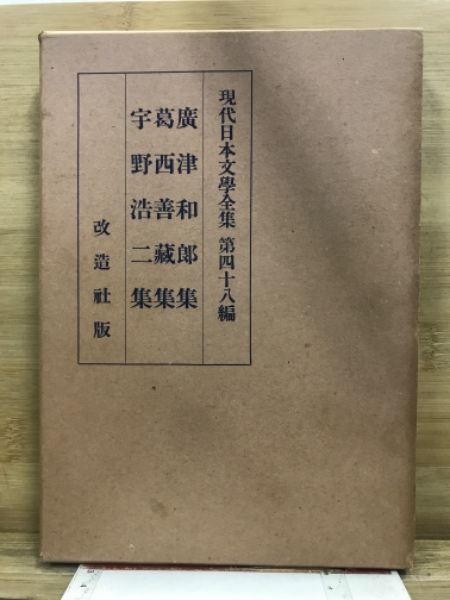 現代日本文學全集 第四十八編
廣津和郎集
葛西善藏集
宇野浩二集
改造社版